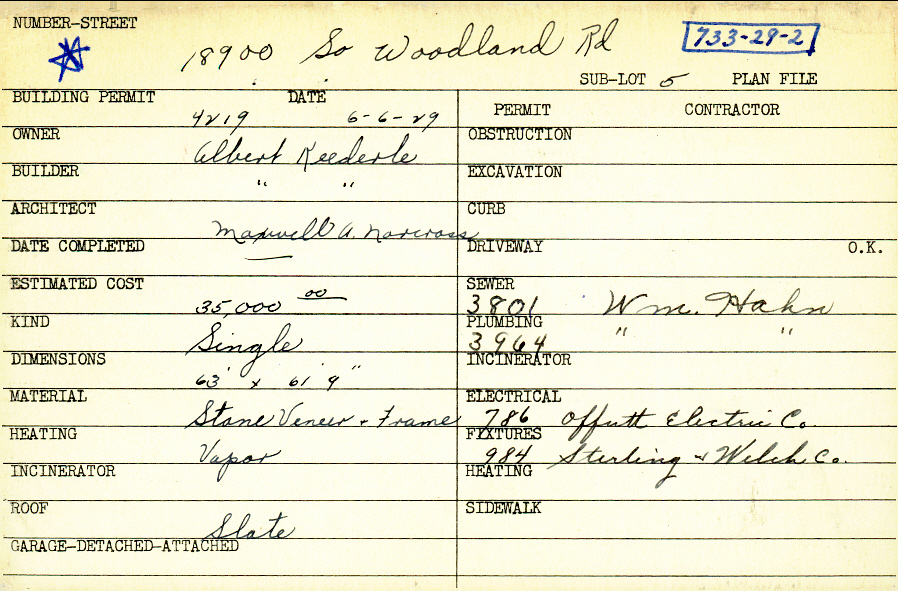 NUMBER-STREET
18900 So Woodland Rd 733-29-2
SUB-LOT 5 PLAN FILE
BUILDING PERMIT DATE
4219 6-6-29
OWNER
Albert Reederle
BUILDER
" "
ARCHITECT
Maxwell A. Norcross
DATE COMPLETED
ESTIMATED COST
35,000 00
KIND
Single
DIMENSIONS
63' x 61' 9"
MATERIAL
Stone Veneer + Frame
HEATING
Vapor
INCINERATOR
ROOF
Slate
GARAGE-DETACHED-ATTACHED
PERMIT CONTRACTOR
OBSTRUCTION
EXCAVATION
CURB
DRIVEWAY O.K.
SEWER
3801 Wm. Hahn
PLUMBING
3964 " "
INCINERATOR
ELECTRICAL
786 Offutt Electric Co.
FIXTURES
984 Sterling & Welch Co.
HEATING
SIDEWALK